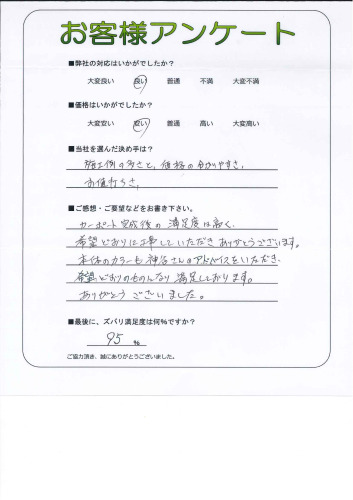 お客様アンケート
■弊社の対応はいかがでしたか?
大変良い 良い 普通 不満 大変不満
■価格はいかがでしたか?
大変安い 安い 普通 高い 大変高い
■当社を選んだ決め手は?
施工例の多さと、価格の分かりやすさ、
お値打ちさ、
■ご感想・ご要望などをお書き下さい。
カーポート完成後の満足度は高く、
希望どおりに工事していただきありがとうございます。
本体のカラーも神谷さんのアドバイスをいただき、
希望どおりのものになり満足しております。
ありがとうございました。
■最後に、ズバリ満足度は何%ですか?
95 %
ご協力頂き、誠にありがとうございました。